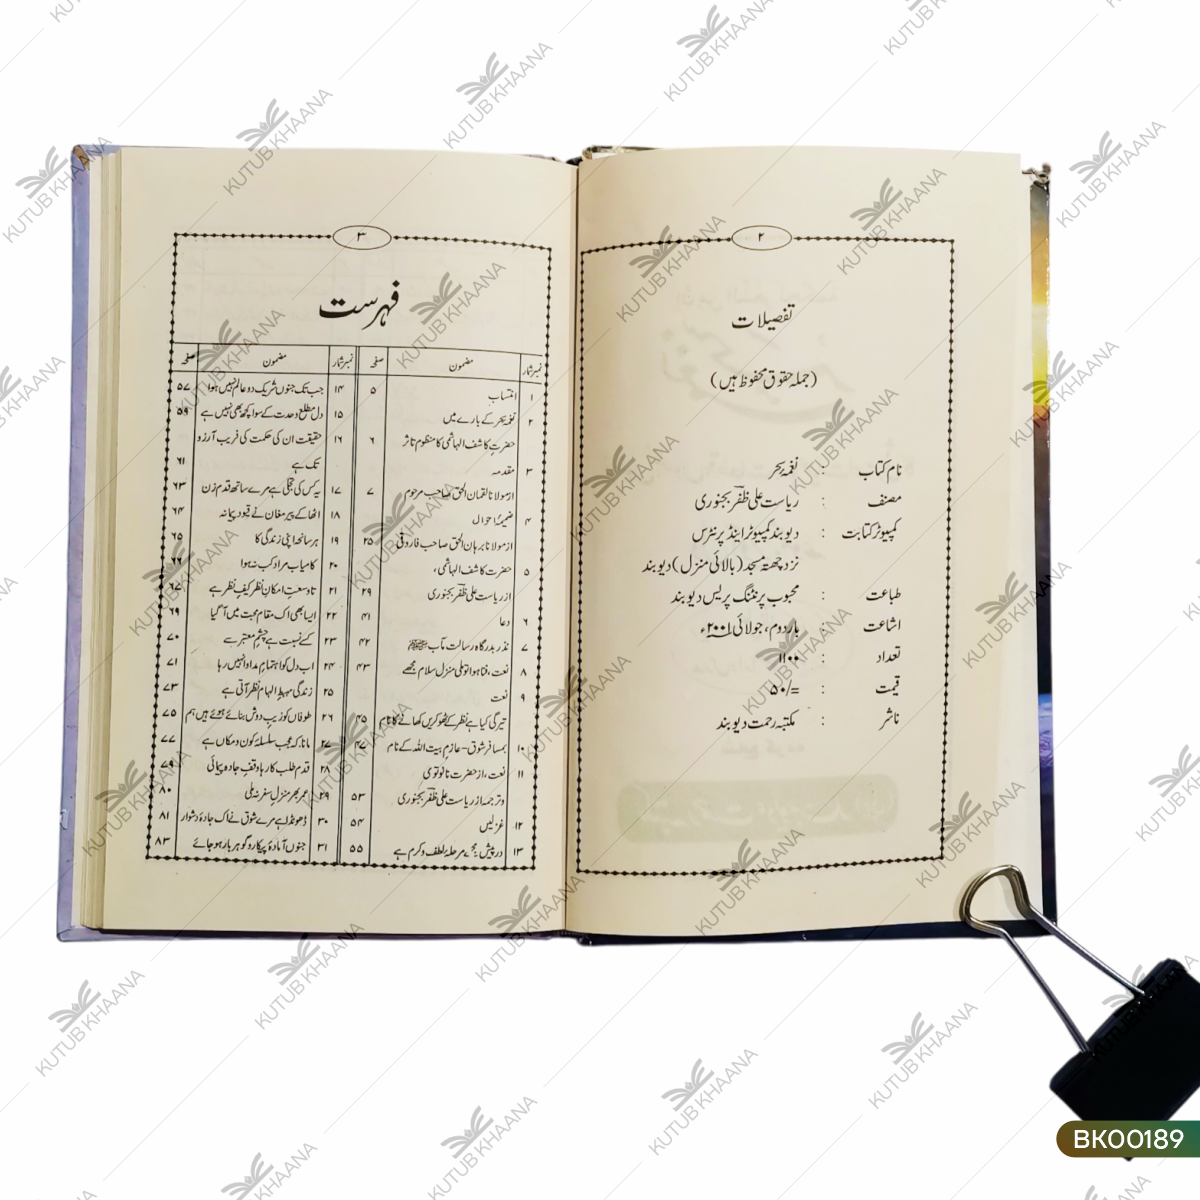 ۲
تفصیلات
(جملہ حقوق محفوظ ہیں)
نام کتاب : نغمۂ بحر
مصنف : ریاست علی ظفر بجنوری
کمپیوٹر کتابت : دیوبند کمپیوٹر اینڈ پرنٹرس
نزد چھتہ مسجد (بالائی منزل) دیوبند
طباعت : محبوب پرنٹنگ پریس دیوبند
اشاعت : بار دوم، جولائی ۲۰۰۱ء
تعداد : ۱۱۰۰
قیمت : ۵۰/=
ناشر : مکتبہ رحمت دیوبند
۳
فہرست
نمبر شمار مضمون صفحہ
۱ انتساب ۵
۲ نغمۂ بحر کے بارے میں
حضرت کاشف الہاشمی کا منظوم تاثر ۶
۳ مقدمہ
از مولانا لقمان الحق صاحب مرحوم ۷
۴ ضمیمۂ احوال
از مولانا برہان الحق صاحب فاروقی ۲۵
۵ حضرت کاشف الہاشمی،
از ریاست علی ظفر بجنوری ۲۹
۶ دعا ۴۱
۷ نذر بدرگاہ رسالت مآب ﷺ ۴۲
۸ نعت، فنا ہوا تو ملی منزل سلام مجھے ۴۳
۹ نعت
تیرگی کیا ہے نظر کے ٹھوکریں کھانے کا نام ۴۵
۱۰ ہمسافر شوق - عازم بیت اللہ کے نام ۴۷
۱۱ نعت، از حضرت نانوتوی
وترجمہ از ریاست علی ظفر بجنوری ۵۳
۱۲ غزلیں ۵۴
۱۳ درپیش مرحلۂ لطف وکرم ہے ۵۵
نمبر شمار مضمون صفحہ
۱۴ جب تک جنوں شریک دو عالم نہیں ہوا ۵۷
۱۵ دل مطلع وحدت کے سوا کچھ بھی نہیں ہے ۵۹
۱۶ حقیقت ان کی حکمت کی فریب آرزو
تک ہے ۶۱
۱۷ یہ کس کی تجلی ہے مرے ساتھ قدم زن ۶۳
۱۸ اٹھا کے پیر مغان نے قیود پیمانہ ۶۴
۱۹ ہر سانحہ اپنی زندگی کا ۶۵
۲۰ کامیاب مراد کب نہ ہوا ۶۶
۲۱ تا وسعت امکان نظر کیف نظر ہے ۶۷
۲۲ ایسا بھی اک مقام محبت میں آ گیا ۶۹
۲۳ کسے نسبت ہے چشم معتبر سے ۷۰
۲۴ اب دل کو اہتمام مداوا نہیں رہا ۷۱
۲۵ زندگی مہبط الہام نظر آتی ہے ۷۳
۲۶ طوفاں کو زیب دوش بنائے ہوئے ہیں ہم ۷۵
۲۷ مانا کہ عجب سلسلۂ کون ومکاں ہے ۷۷
۲۸ قدم طلب کا رہا وقف جادہ پیمائی ۷۹
۲۹ عمر بھر منزل سفر نہ ملی ۸۰
۳۰ ڈھونڈا ہے مرے شوق نے اک جادۂ دشوار ۸۱
۳۱ جنوں آمادۂ پیکار ہو گوہر بار ہو جائے ۸۳
KUTUB KHAANA
BK00189